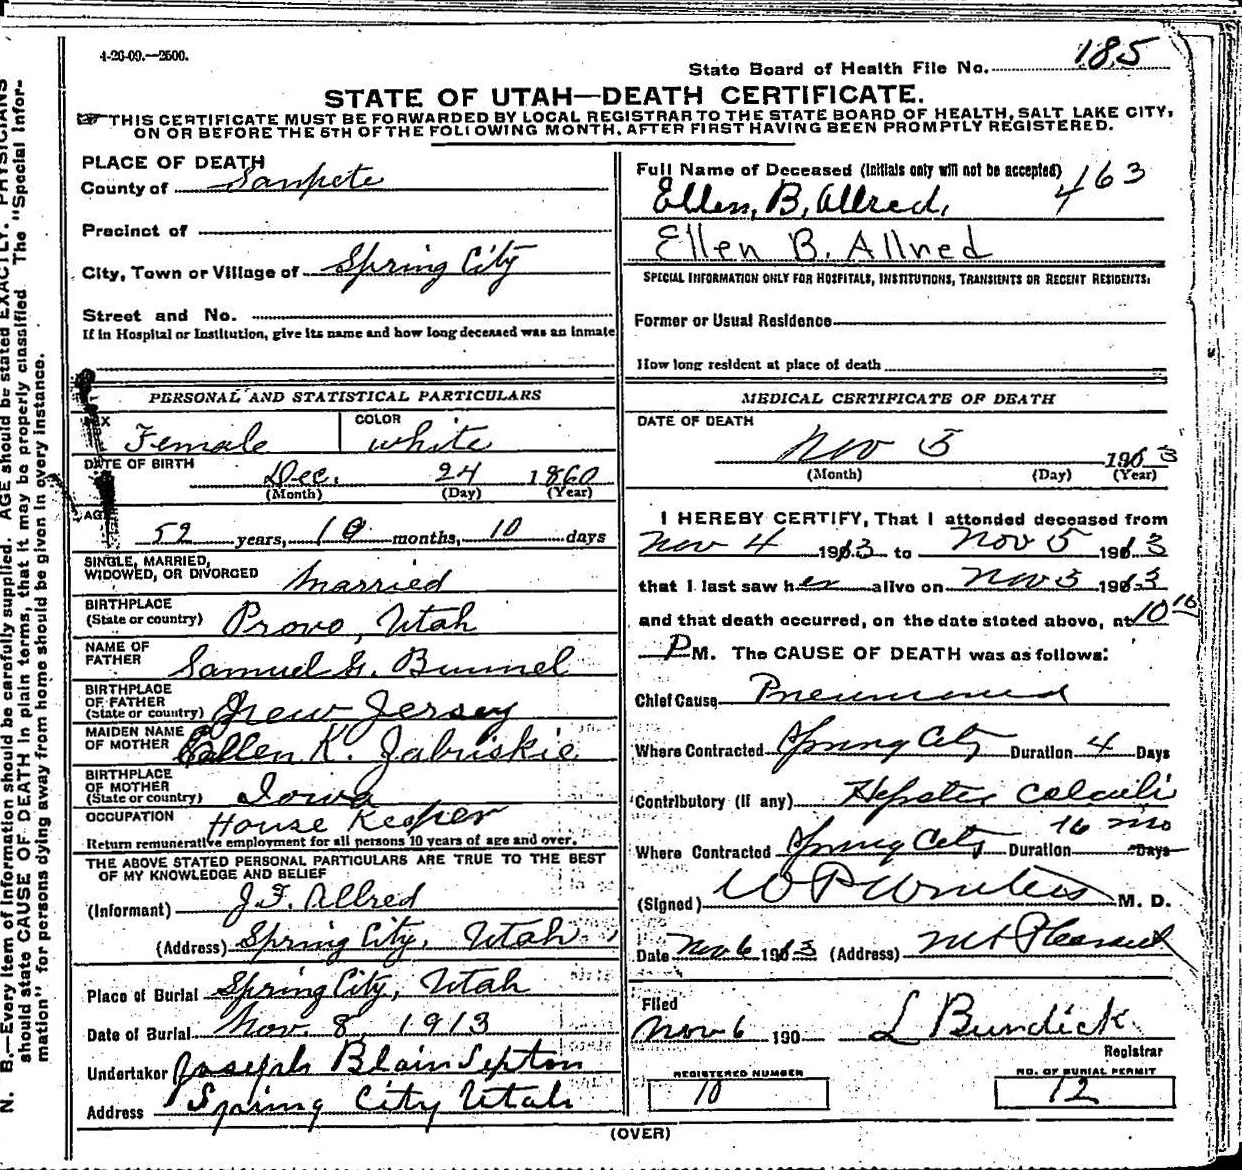 4-26-09.—2500.
State Board of Health File No. 185
STATE OF UTAH—DEATH CERTIFICATE.
THIS CERTIFICATE MUST BE FORWARDED BY LOCAL REGISTRAR TO THE STATE BOARD OF HEALTH, SALT LAKE CITY,
ON OR BEFORE THE 5TH OF THE FOLLOWING MONTH, AFTER FIRST HAVING BEEN PROMPTLY REGISTERED.
PLACE OF DEATH
County of Sanpete
Precinct of
City, Town or Village of Spring City
Street and No.
If in Hospital or Institution, give its name and how long deceased was an inmate
PERSONAL AND STATISTICAL PARTICULARS
SEX Female COLOR white
DATE OF BIRTH Dec. 24 1860
(Month) (Day) (Year)
AGE 52 years, 10 months, 10 days
SINGLE, MARRIED,
WIDOWED, OR DIVORCED Married
BIRTHPLACE
(State or country) Provo, Utah
NAME OF
FATHER Samuel G. Bunnel
BIRTHPLACE
OF FATHER
(State or country) New Jersey
MAIDEN NAME
OF MOTHER Ellen K. Zabriskie
BIRTHPLACE
OF MOTHER
(State or country) Iowa
OCCUPATION House Keeper
Return remunerative employment for all persons 10 years of age and over.
THE ABOVE STATED PERSONAL PARTICULARS ARE TRUE TO THE BEST
OF MY KNOWLEDGE AND BELIEF
(Informant) J.F. Allred
(Address) Spring City, Utah
Place of Burial Spring City, Utah
Date of Burial Nov. 8, 1913
Undertaker Joseph Blain Septon
Address Spring City Utah
Full Name of Deceased (Initials only will not be accepted)
463
Ellen, B, Allred,
Ellen B. Allred
SPECIAL INFORMATION ONLY FOR HOSPITALS, INSTITUTIONS, TRANSIENTS OR RECENT RESIDENTS:
Former or Usual Residence
How long resident at place of death
MEDICAL CERTIFICATE OF DEATH
DATE OF DEATH
Nov 5 1913
(Month) (Day) (Year)
I HEREBY CERTIFY, That I attended deceased from
Nov 4 1913 to Nov 5 1913
that I last saw her alive on Nov 5 1913
and that death occurred, on the date stated above, at 10 10
P M. The CAUSE OF DEATH was as follows:
Chief Cause Pneumonia
Where Contracted Spring City Duration 4 Days
Contributory (if any)
Where Contracted Spring City Duration 16 mo Days
(Signed) W P Winters M. D.
Date Nov 6 1913 (Address) Mt Pleasant
Filed
Nov 6 190 L Burdick
Registrar
REGISTERED NUMBER
10
NO. OF BURIAL PERMIT
12
(OVER)
N. B.—Every item of information should be carefully supplied. AGE should be stated EXACTLY. PHYSICIANS
should state CAUSE OF DEATH in plain terms, that it may be properly classified. The "Special Infor-
mation" for persons dying away from home should be given in every instance.